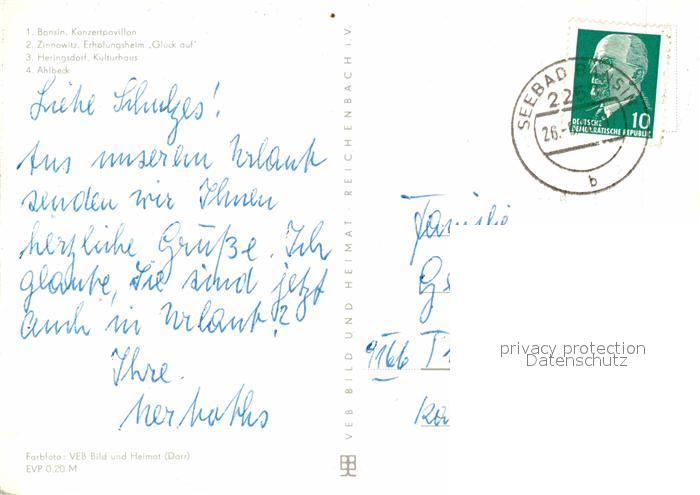 1. Bansin, Konzertpavillon
2. Zinnowitz, Erholungsheim „Glück auf"
3. Heringsdorf, Kulturhaus
4. Ahlbeck
Liebe Schulzes!
Aus unserem Urlaub
senden wir Ihnen
herzliche Grüße. Ich
glaube, Sie sind jetzt
auch in Urlaub?
Ihre
Farbfoto: VEB Bild und Heimat (Darr)
EVP 0,20 M
VEB BILD UND HEIMAT · REICHENBACH i. V.
SEEBAD BANSIN
26.
b
10
DEUTSCHE
DEMOKRATISCHE REPUBLIK
Familie
9166
privacy protection
Datenschutz